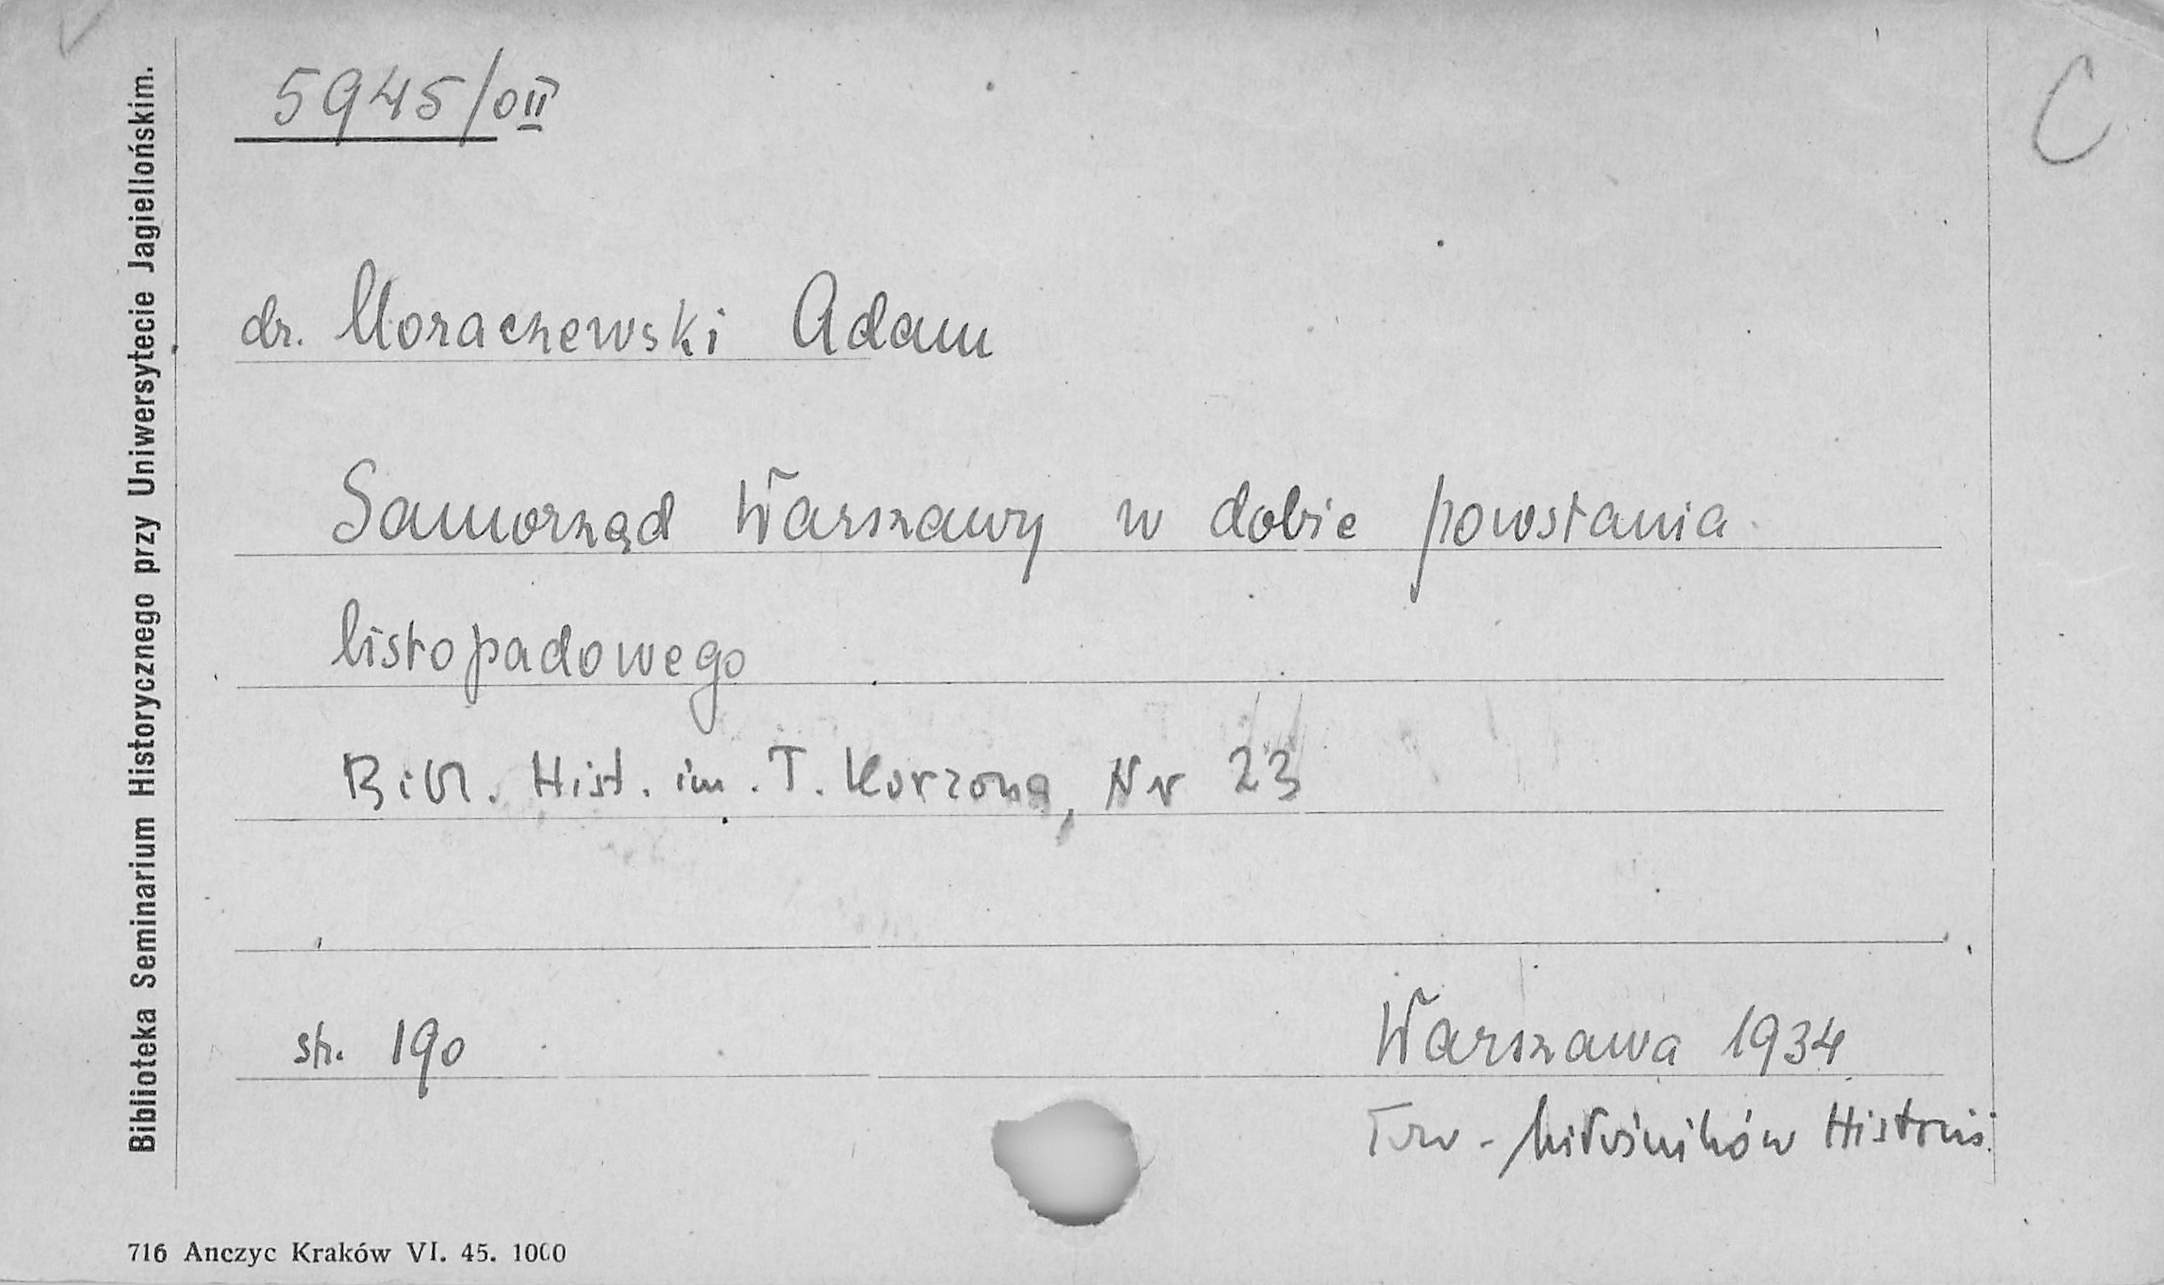 5945/oII
C
dr. Moraczewski Adam
Samorząd Warszawy w dobie powstania
listopadowego
Bibl. Hist. im. T. Korzona, Nr 23
str. 190
Warszawa 1934
Tow. Miłośników Historii
Biblioteka Seminarium Historycznego przy Uniwersytecie Jagiellońskim.
716 Anczyc Kraków VI. 45. 1000